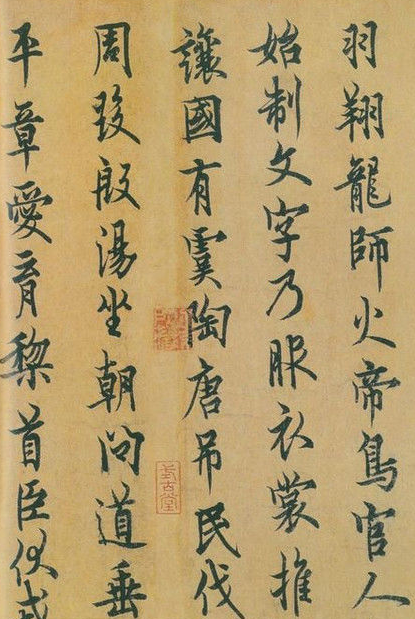 羽翔龍師火帝鳥官人
始制文字乃服衣裳推
讓國有虞陶唐吊民伐
周發殷湯坐朝問道垂
平章愛育黎首臣伏戎
式古堂